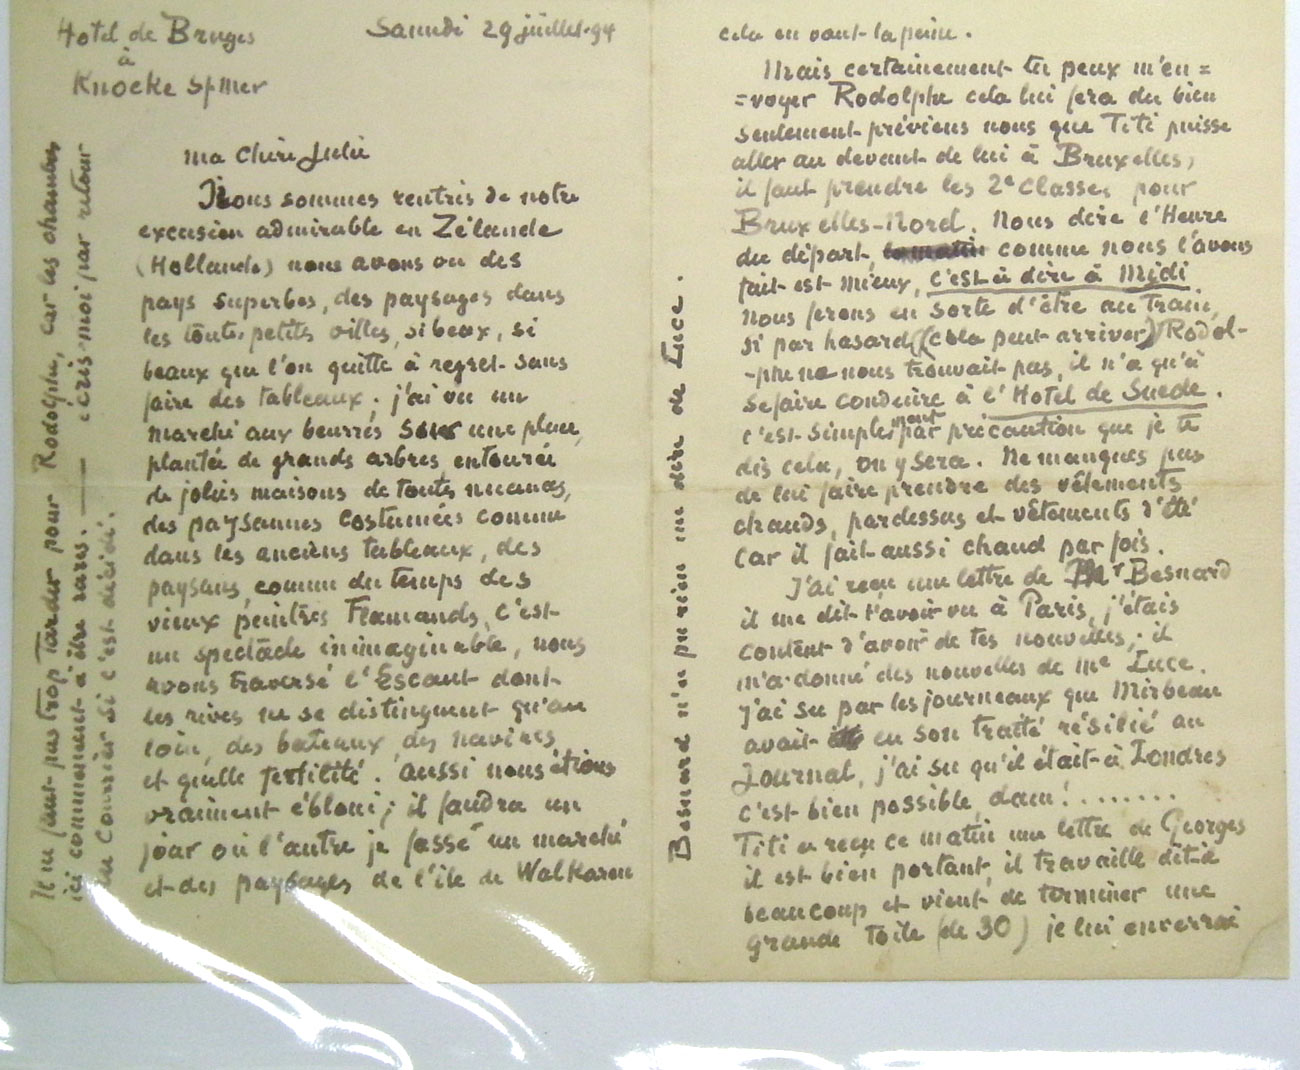 Hotel de Bruges
à
Knocke s/Mer
Samedi 29 juillet-94
ma chère Julie
Nous sommes rentrés de notre
excusion admirable en Zélande
(Hollande) nous avons vu des
pays superbes, des paysages dans
les toutes petites villes, si beaux, si
beaux que l'on quitte à regret sans
faire des tableaux; j'ai vu un
marché aux beurres sur une place,
plantée de grands arbres, entourée
de jolies maisons de toutes nuances,
des paysannes costumées comme
dans les anciens tableaux, des
paysans, comme du temps des
vieux peintres Flamands, c'est
un spectacle inimaginable, nous
avons traversé l'Escaut dont
les rives ne se distinguent qu'au
loin, des bateaux des navires
et quelle fertilité. aussi nous étions
vraiment ébloui; il faudra un
jour où l'autre je fasse un marché
et des paysages de l'île de Walkaren
Il ne faut pas trop tarder pour Rodolphe, car les chambres
ici commencent à être rares. — écris-moi par retour
du courrier si c'est décidé.
cela en vaut la peine.
Mais certainement tu peux m'en=
=voyer Rodolphe cela lui fera du bien
seulement préviens nous que Titi puisse
aller au devant de lui à Bruxelles,
il faut prendre les 2e classes pour
Bruxelles-Nord. Nous dire l'Heure
du départ, comme nous l'avons
fait est mieux, c'est à dire à Midi
nous ferons en sorte d'être au Train,
si par hasard (cela peut arriver) Rodol-
-phe ne nous trouvait pas, il n'a qu'à
se faire conduire à l'Hotel de Suede.
c'est simplement par précaution que je te
dis cela, on y sera. Ne manques pas
de lui faire prendre des vêtements
chauds, pardessus et vêtements d'été
car il fait aussi chaud par fois.
J'ai reçu une lettre de Mr Besnard
il me dit t'avoir vu à Paris, j'étais
content d'avoir de tes nouvelles; il
m'a donné des nouvelles de me Luce.
J'ai su par les journeaux que Mirbeau
avait eu son traité résilié au
Journal, j'ai su qu'il était à Londres
c'est bien possible, dam!........
Titi a reçu ce matin une lettre de Georges
il est bien portant, il travaille dit-il
beaucoup et vient de terminer une
grande toile (de 30) je lui enverrai
Besnard n'a pu rien me dire de Luce.